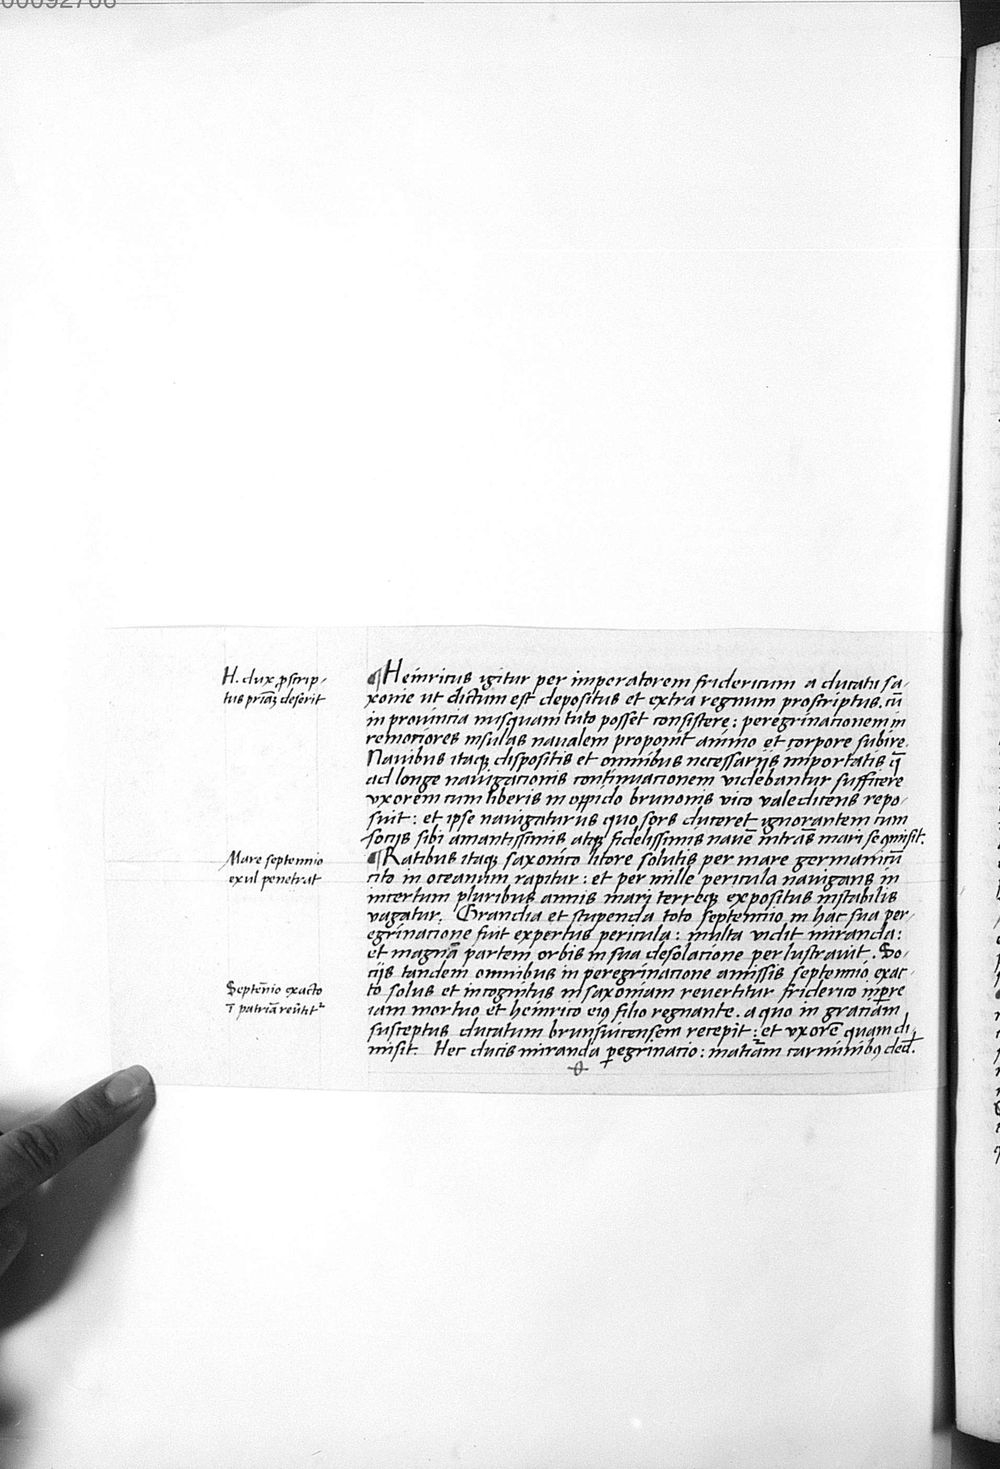 00092766
H. dux ꝓscrip-
tus pr̄iaꝫ deserit
¶Heinricus igitur per imperatorem fridericum a ducatu sa-
xonie ut dictum est depositus et extra regnum proscriptus. cū
in prouincia nusquam tuto posset consistere: peregrinationem in
remotiores insulas naualem proponit animo et corpore subire.
Nauibus itaqꝫ dispositis et omnibus necessarijs importatis q̄
ad longe nauigationis continuacionem videbantur sufficere
vxorem cum liberis in oppido brunonis vico valedicens repo-
suit: et ipse nauigaturus quo sors duceret ignorantem cum
socijs sibi amantissimis atqꝫ fidelissimis nauē intrās mari se ꝯmisit.
Mare septennio
exul penetrat
¶Ratibus itaqꝫ saxonico litore solutis per mare germanicū
cito in oceanum rapitur: et per mille pericula nauigans in
incertum pluribus annis mari terreqꝫ expositus instabilis
vagatur. Grandia et stupenda toto septennio in hac sua per-
egrinacione fuit expertus pericula: multa vidit miranda:
et magnā partem orbis in sua desolacione perlustrauit. So-
cijs tandem omnibus in peregrinacione amissis septennio exac-
Septēnio exacto
ī patriā reūtit᷑
to solus et incognitus in saxoniam reuertitur friderico inꝑre
iam mortuo et heinrico eiꝯ filio regnante. a quo in graciam
susceptus ducatum brunsuicensem recepit: et vxorē quam di-
misit. Hec ducis miranda ꝑegrinatio: matīam carminibꝯ ded̄.